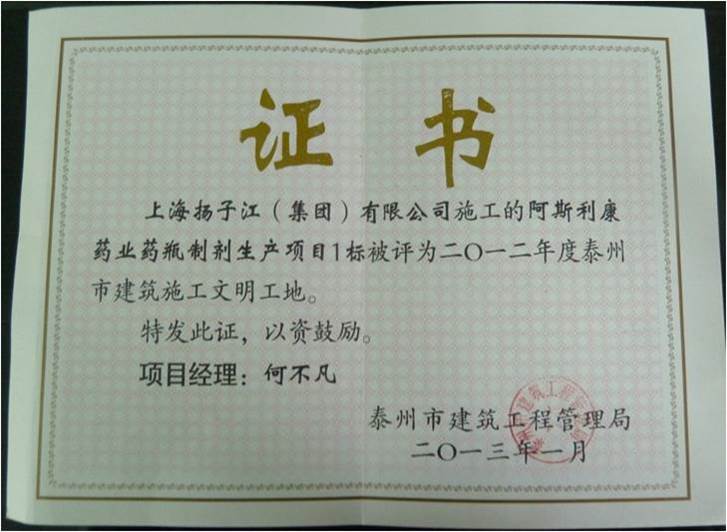 证书
上海扬子江(集团)有限公司施工的阿斯利康
药业药瓶制剂生产项目1标被评为二〇一二年度泰州
市建筑施工文明工地。
特发此证，以资鼓励。
项目经理：何不凡
泰州市建筑工程管理局
二〇一三年一月